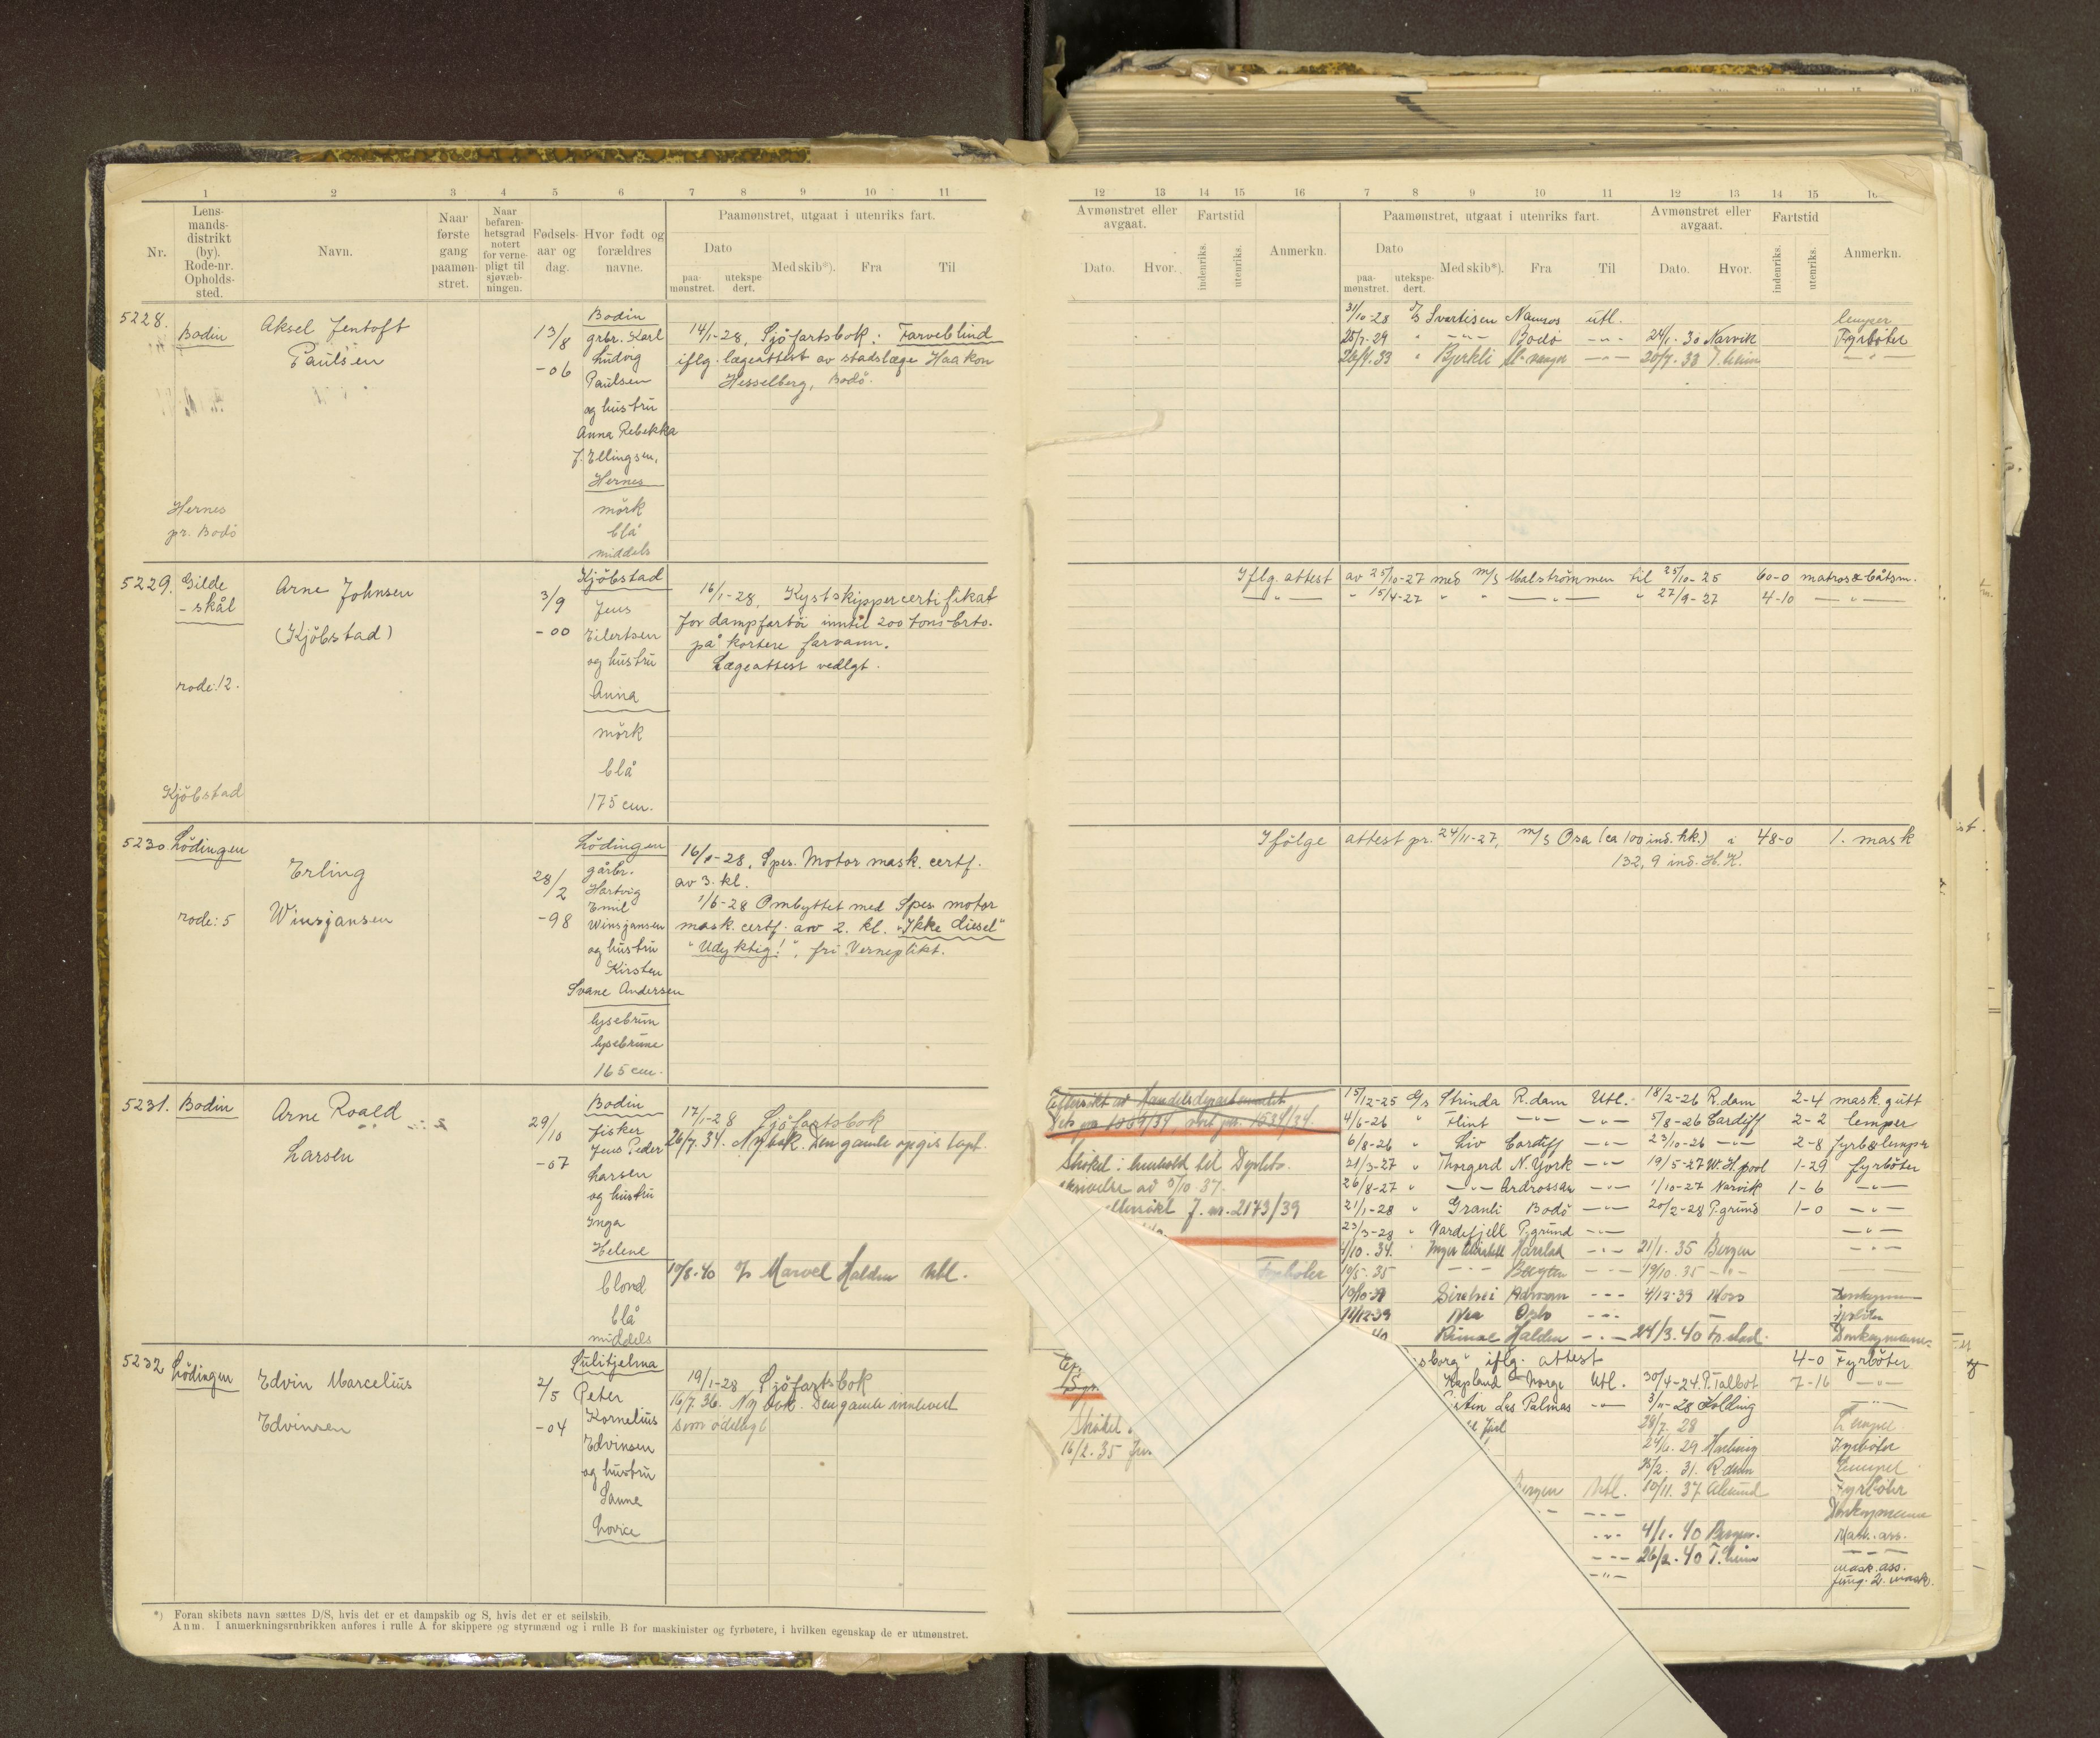 1 2 3 4 5 6 7 8 9 10 11
Nr.
Lens-
mands-
distrikt
(by).
Rode-nr.
Opholds-
sted.
Navn.
Naar
første
gang
paamøn-
stret.
Naar
befaren-
hetsgrad
notert
for verne-
pligt til
sjøvæb-
ningen.
Fødsels-
aar og
dag.
Hvor født og
forældres
navne.
Paamønstret, utgaat i utenriks fart.
Dato
paa-
mønstret.
utekspe
dert.
Med skib*).
Fra
Til
5228.
Bodin
Hernes
pr. Bodö
Aksel Jentoft
Paulsen
13/8
-06
Bodin
grbr. Karl
Ludvig
Paulsen
og hustru
Anna Rebekka
f. Ellingsen,
Hernes
mörk
blå
middels
14/1-28, Sjöfartsbok: Farveblind
iflg. lægeattest av stadslæge Haakon
Hesselberg, Bodö.
5229.
Gilde
-skål
rode: 12.
Kjöbstad
Arne Johnsen
(Kjöbstad)
3/9
-00
Kjöbstad
Jens
Eilertsen
og hustru
Anna
mörk
blå
175 cm.
16/1-28, Kystskippercertifikat
for dampfartöi inntil 200 tons brto.
på kortere farvann.
Lægeattest vedlgt.
5230
Lödingen
rode: 5
Erling
Winsjansen
28/2
-98
Lödingen
gårbr.
Hartvig
Emil
Winsjansen
og hustru
Kirsten
Svane Andersen
lysebrun
lysebrune
165 cm.
16/1-28, Spes. Motor mask. certf.
av 3. kl.
1/6-28 Ombyttet med Spes. motor
mask. certf. av 2. kl. "Ikke diesel"
"Udyktig!", fri Verneplikt.
5231.
Bodin
Arne Roald
Larsen
29/10
-07
Bodin
fisker
Jens Peder
Larsen
og hustru
Inga
Helene
blond
blå
middels
17/1-28 Sjöfartsbok
26/7.34. Ny bok. Den gamle opgis tapt.
19/8-40 Marvel Halden utl.
5232
Lödingen
Edvin Marcelius
Edvinsen
2/5
-04
Sulitjelma
Peter
Kornelius
Edvinsen
og hustru
Sanna
Lovise
19/1-28 Sjöfartsbok
16/7.36. Ny bok. Den gamle innlevert
som ödelagt
*) Foran skibets navn sættes D/S, hvis det er et dampskib og S, hvis det er et seilskib.
Anm. I anmerkningsrubrikken anføres i rulle A for skippere og styrmænd og i rulle B for maskinister og fyrbøtere, i hvilken egenskap de er utmønstret.
12 13 14 15 16 7 8 9 10 11 12 13 14 15
Avmønstret eller
avgaat.
Dato.
Hvor.
Fartstid
indenriks.
utenriks.
Anmerkn.
Paamønstret, utgaat i utenriks fart.
Dato
paa-
mønstret.
utekspe-
dert.
Med skib*).
Fra
Til
Avmønstret eller
avgaat.
Dato.
Hvor.
Fartstid
indenriks.
utenriks.
Anmerkn.
31/10-28 Svartisen Namsos utl. lemper
25/7-29 " -"- Bodö -"- 24/1-30 Narvik Fyrböter
33 " Bjerkli -"- 20/7.33 T.heim -"-
Iflg. attest av 25/10-27 med m/s Malströmmen til 25/10-25 60-0 matros & båtsm.
-"- " 15/4-27 " " -"- " 27/9-27 4-10 -"-
Ifölge attest pr. 24/11-27, m/s Osa (ca 100 ind. hk.) i 48-0 1. mask
132,9 ind. H.K.
Eftersökt av Handelsdepartementet
1534/34.
Slöket i henhold til Dpshts.
skrivelse av 5/10-37.
ettersökt J. nr. 2173/39
Fyrböter
15/12-25 Strinda R.dam Utl. 18/2-26 R.dam 2-4 mask. gutt
4/6-26 " Flint -"- -"- 5/8-26 Cardiff 2-2 lemper
6/8-26 " Liv Cardiff -"- 23/10-26 -"- 2-8 fyrb & lemper
21/3-27 " Thorgerd N.York -"- 19/5-27 W.H.pool 1-29 fyrböter
26/8-27 " -"- Ardrossan -"- 1/10-27 Narvik 1-6 -"-
21/1-28 " Granli Bodö -"- 20/2-28 P.grund 1-0 -"-
23/3-28 " Vardefjell P.grund -"- -"-
4/10.34. " Inger Harstad -"- 21/1.35 Bergen -"-
19/5.35 -"- Bergen -"- 19/10.35 -"-
19/10-39 Sirehei Adrossan -"- 4/12-39 Moss Donkeymann
11/12-39 Nea Oslo -"- Fyrböter
40 Rimac Halden -"- 24/3.40 Donkeymann
sborg" iflg. attest 4-0 Fyrböter
Kapland Norge Utl. 30/4-24 P. Talbot 7-16 -"-
Las Palmas -"- 3/11-28 Kolding -"-
Jarl 28/7.28 Lemper
24/6.29 Fyrböter
25/2.31. R.dam Lemper
Slöket
16/2.35
Bergen Utl. 10/11.37 Ålesund Fyrböter
-"- -"- Donkeymann
-"- 4/1.40 Bergen. Mask. ass.
-"- 26/2.40 T.heim -"-
-"- mask. ass.
fung. 2. mask.